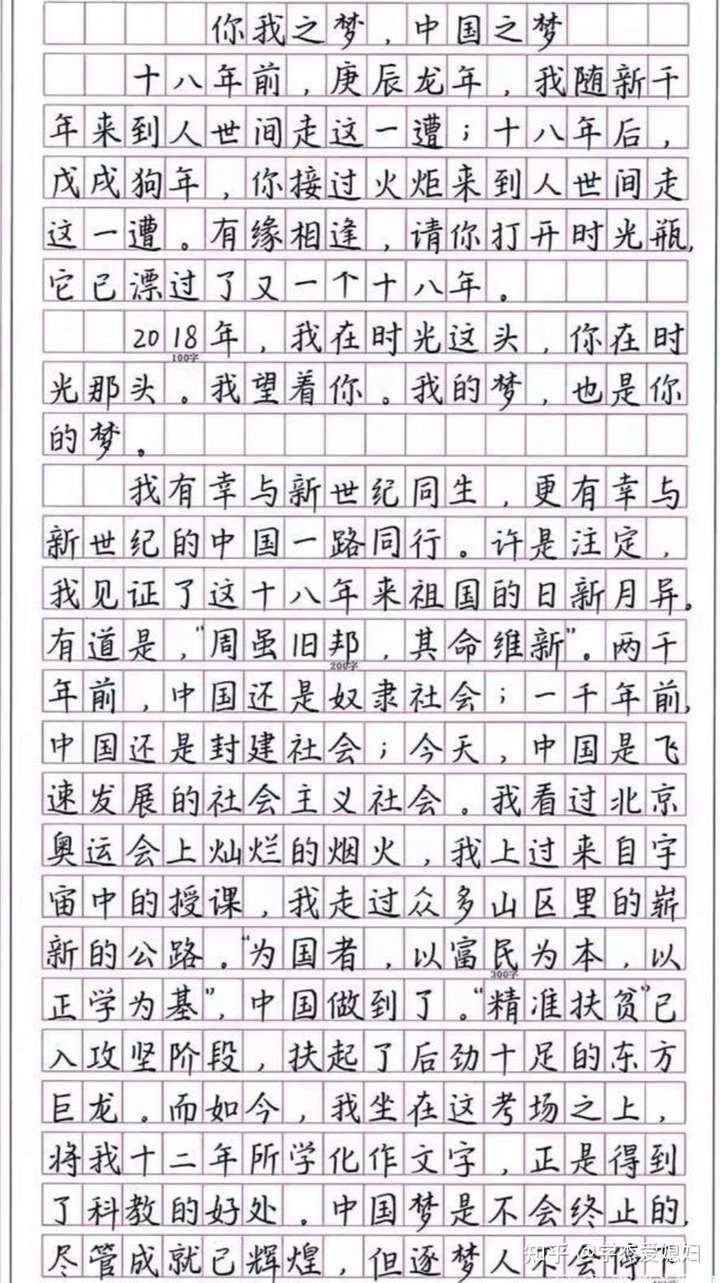 你我之梦，中国之梦
十八年前，庚辰龙年，我随新千
年来到人世间走这一遭；十八年后，
戊戌狗年，你接过火炬来到人世间走
这一遭。有缘相逢，请你打开时光瓶，
它已漂过了又一个十八年。
2018年，我在时光这头，你在时
100字
光那头。我望着你。我的梦，也是你
的梦。
我有幸与新世纪同生，更有幸与
新世纪的中国一路同行。许是注定，
我见证了这十八年来祖国的日新月异。
有道是，“周虽旧邦，其命维新”。两千
200字
年前，中国还是奴隶社会；一千年前，
中国还是封建社会；今天，中国是飞
速发展的社会主义社会。我看过北京
奥运会上灿烂的烟火，我上过来自宇
宙中的授课，我走过众多山区里的崭
新的公路。“为国者，以富民为本，以
300字
正学为基”，中国做到了。“精准扶贫”已
入攻坚阶段，扶起了后劲十足的东方
巨龙。而如今，我坐在这考场之上，
将我十二年所学化作文字，正是得到
了科教的好处。中国梦是不会终止的，
尽管成就已辉煌，但逐梦人不会
知乎 @学渣爱媳妇